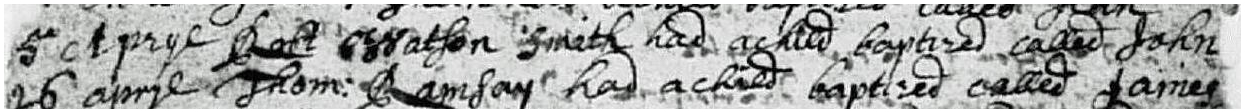 baptized called
5 Apryle Robt Watson Smith had a child baptized called John
26 apryle Thom: Ramsay had a child baptized called James